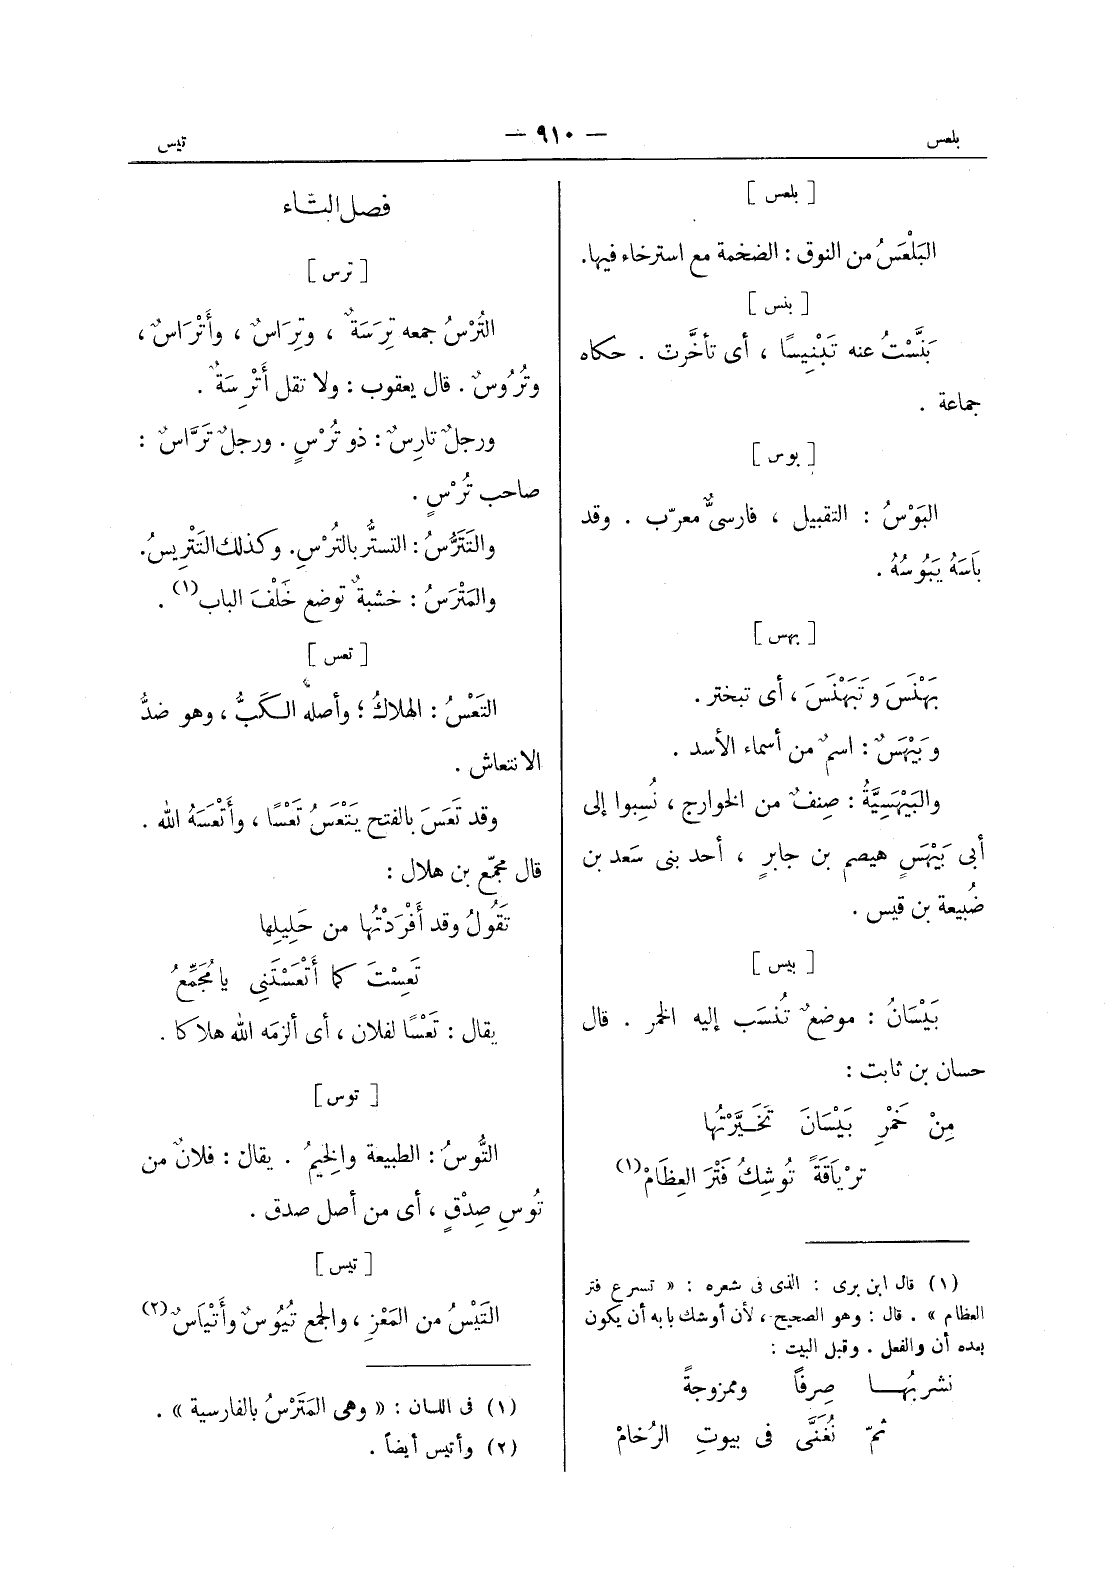 بلعس
— ٩١٠ —
تيس
[ بلعس ]
البَلْعَسُ من النوق : الضخمة مع استرخاء فيها.
[ بنس ]
بَنَّسْتُ عنه تَبْنِيسًا ، أى تأخَّرت . حكاه
جماعة .
[ بوس ]
البَوْسُ : التقبيل ، فارسىٌّ معرّب . وقد
بَاسَهُ يَبُوسُهُ .
[ بهس ]
بَهْنَسَ وَتَبَهْنَسَ ، أى تبختر .
وبَيْهَسٌ : اسمٌ من أسماء الأسد .
والبَيْهَسِيَّةُ : صِنفٌ من الخوارج ، نُسِبوا إلى
أبى بَيْهَسٍ هيصم بن جابرٍ ، أحد بنى سَعد بن
ضُبيعة بن قيس .
[ بيس ]
بَيْسَانُ : موضعٌ تُنسَب إليه الخمر . قال
حسان بن ثابت :
مِنْ خَمْرِ بَيْسَانَ تَخَيَّرْتُها
تِرْيَاقَةً تُوشِكُ فَتْرَ العِظَامْ (١)
(١) قال ابن برى : الذى فى شعره : « تسرع فتر
العظام » . قال : وهو الصحيح ، لأن أوشك بابه أن يكون
بعده أن والفعل . وقبل البيت :
نشربُهـا صِرفاً وممزوجةً
ثمّ نُغَنَّى فى بيوتِ الرُخامْ
فصل التّاء
[ ترس ]
التُرْسُ جمعه تِرَسَةٌ ، وتِرَاسٌ ، وأَتْرَاسٌ ،
وتُرُوسٌ . قال يعقوب : ولا تقل أَتْرِسَةٌ .
ورجلٌ تارِسٌ : ذو تُرْسٍ . ورجلٌ تَرَّاسٌ :
صاحب تُرْسٍ .
والتَتَرُّسُ : التستُّر بالتُرْسِ. وكذلك التَتْرِيسُ.
والمَتْرَسُ : خشبةٌ توضع خَلْفَ الباب (١) .
[ تعس ]
التَعْسُ : الهلاكُ ؛ وأصله الكَبُّ ، وهو ضدُّ
الانتعاش .
وقد تَعَسَ بالفتح يَتْعَسُ تَعْسًا ، وأَتْعَسَهُ الله .
قال مجمّع بن هلال :
تَقُولُ وقد أَفْرَدْتُها من حَلِيلِها
تَعِسْتَ كما أَتْعَسْتَنِى يا مُجَمِّعُ
يقال : تَعْسًا لفلان ، أى ألزمَه الله هلاكا .
[ توس ]
التُّوسُ : الطبيعة والخِيمُ . يقال : فلانٌ من
تُوسِ صِدْقٍ ، أى من أصل صدق .
[ تيس ]
التَيْسُ من المَعْزِ ، والجمع تُيُوسٌ وأَتْيَاسٌ (٢)
(١) فى اللسان : « وهى المَتَرْسُ بالفارسية » .
(٢) وأتيس أيضاً .